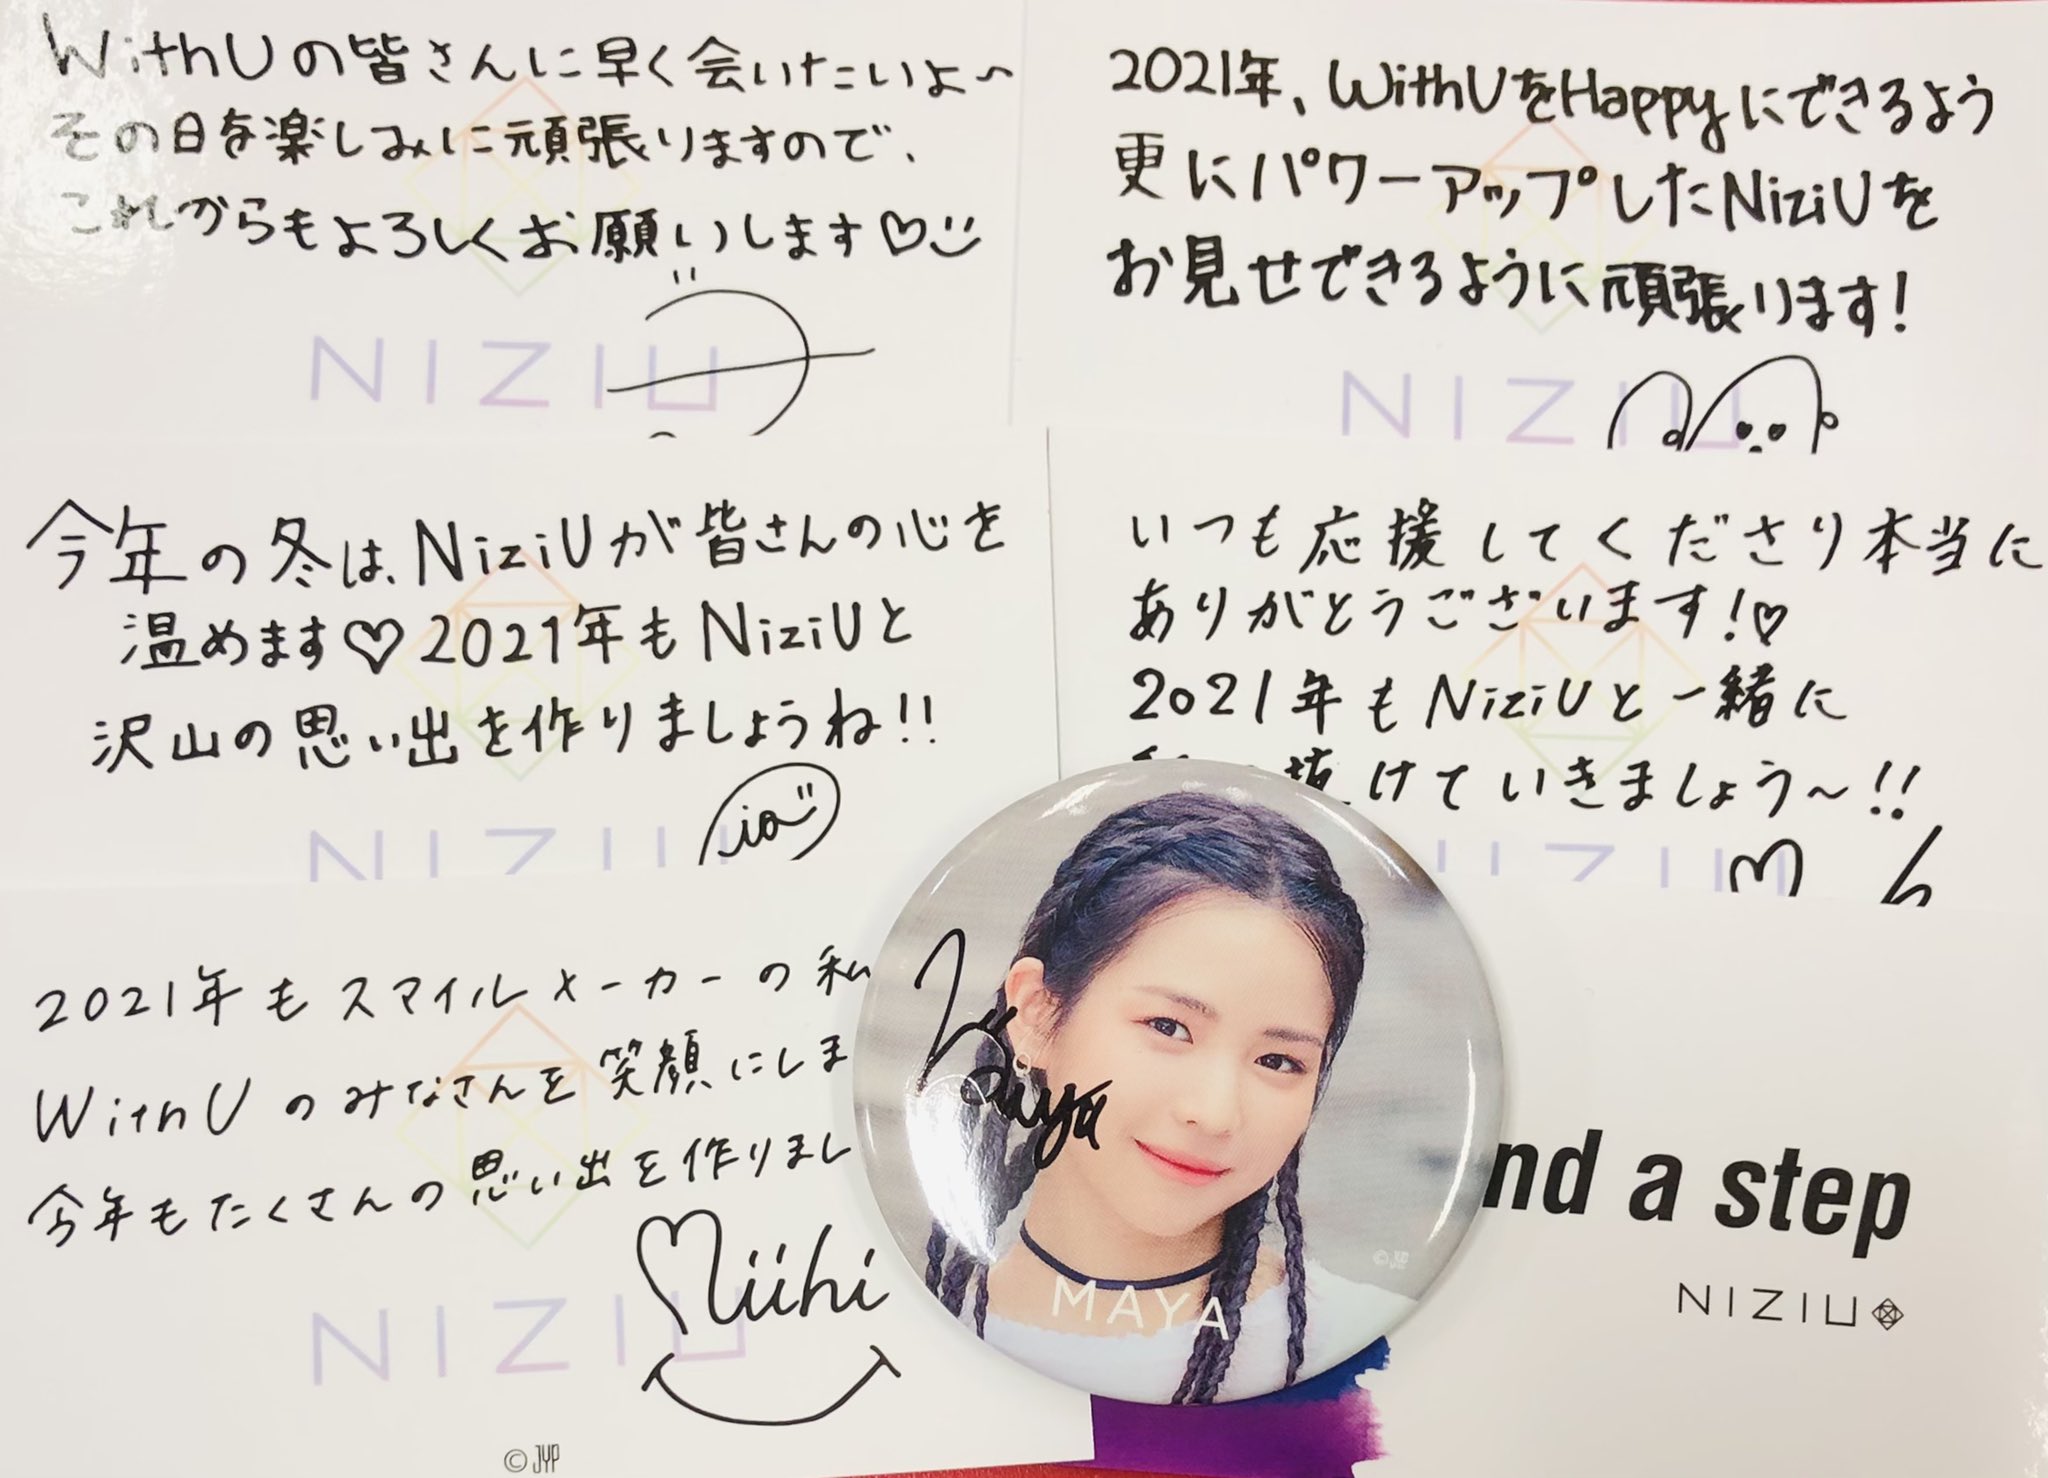 WithUの皆さんに早く会いたいよ〜
その日を楽しみに頑張りますので、
これからもよろしくお願いします♡
NIZIU
2021年、WithUをHappyにできるよう
更にパワーアップしたNiziUを
お見せできるように頑張ります!
NIZIU
今年の冬は、NiziUが皆さんの心を
温めます♡2021年もNiziUと
沢山の思い出を作りましょうね!!
NIZIU
いつも応援してくださり本当に
ありがとうございます!♡
2021年もNiziUと一緒に
けていきましょう〜!!
NIZIU
2021年もスマイルメーカーの私
WithUのみなさんを笑顔にしま
今年もたくさんの思い出を作りまし
Miihi
NIZIU
©JYP
Maya
MAYA
©JYP
nd a step
NIZIU